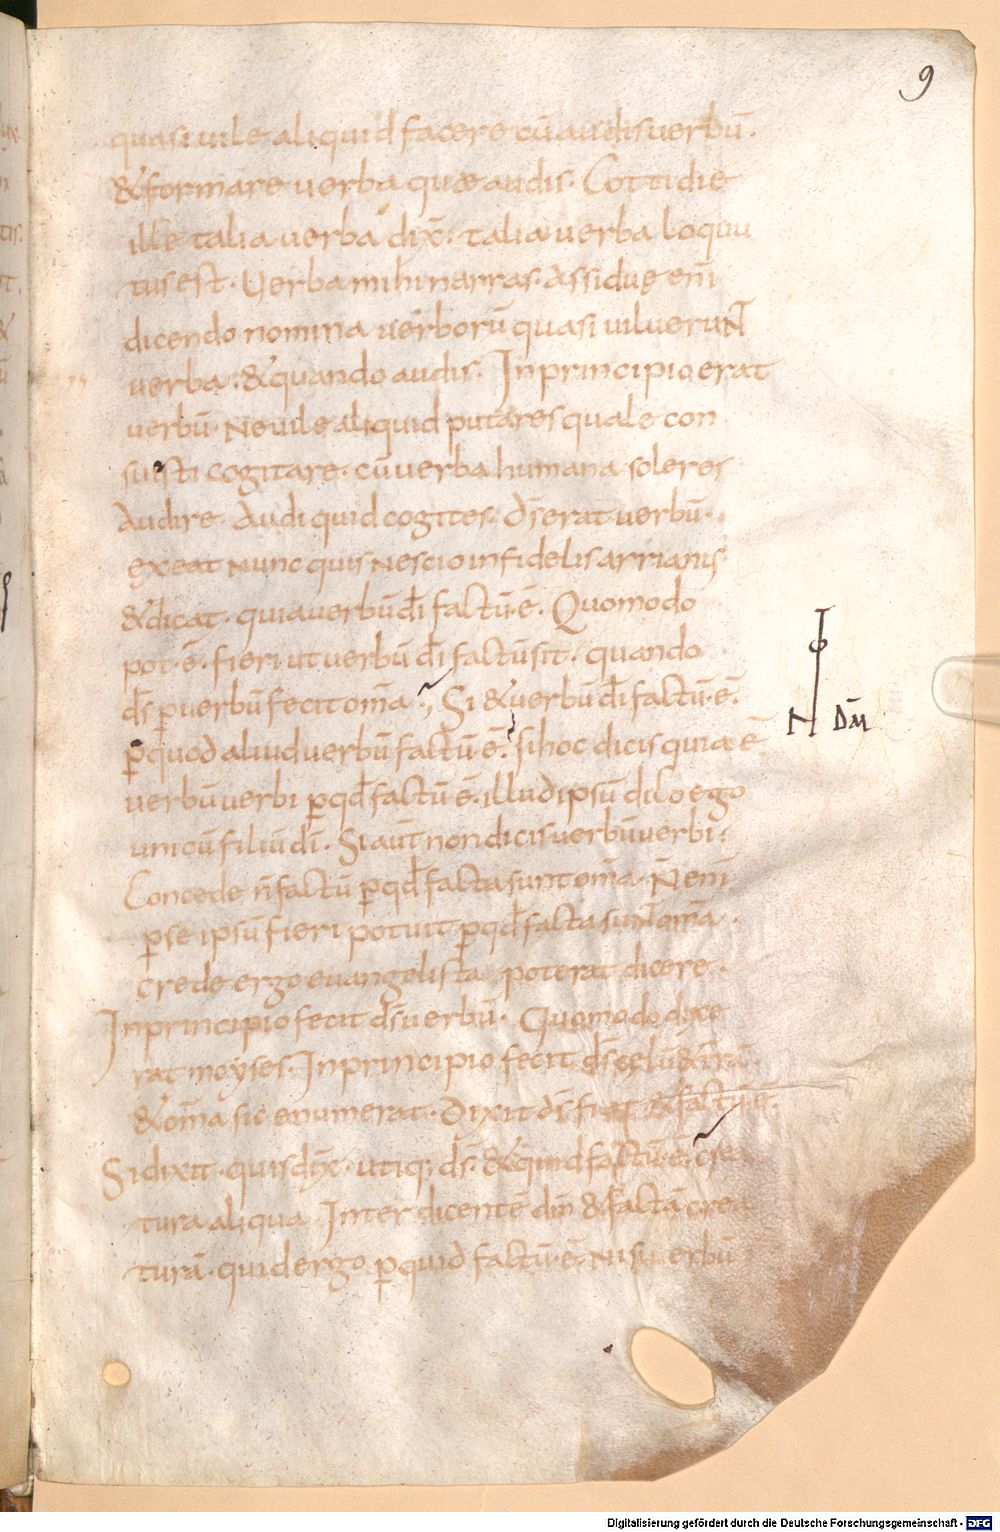 9
quasi uile aliquid facere cū audis uerbū.
& formare uerba quae audis. Cottidie
ille talia uerba dix̄. talia uerba loqutu
tus est. Uerba mihi narras. Assidue eni̅
dicendo nomina uerborū quasi uiluerunt
uerba. & quando audis. In principio erat
uerbū. Ne uile aliquid putares quale con
suisti cogitare. cū uerba humana soleres
Audire. Audi quid cogites. d̄s erat uerbū.
exeat nunc quis nescio infidelis arrianis
& dicat. quia uerbū dī factū. ē. Quomodo
pot. ē. fieri ut uerbū dī factū sit. quando
d̄s ꝑ uerbū fecit om̄a. Si & uerbū dī factū. ē.
ꝑ quod aliud uerbū factū ē. si hoc dicis quia ē
uerbū uerbi ꝑ qd̄ factū ē. illud ipsū dico ego
unicū filiū dī. Si aūt non dicis uerbū uerbi.
Concede n̄ factū ꝑ qd̄ facta sunt om̄a. N̄ eni̅
ꝑ se ipsū fieri potuit ꝑ qd̄ facta sunt om̄a.
crede ergo euangelista poterat dicere.
In principio fecit d̄s uerbū. Quomodo dixe
rat moyses. In principio fecit d̄s celū & t̄rā.
& om̄a sic enumerat. Dixit d̄s fiat & factū ē.
Si dixit. quis dix̄. utiq; d̄s. & quid factū. ē. crea
tura aliqua. Inter dicentē dm̄ & factā crea
turā. quid ergo ꝑ quid factū. ē. nisi uerbū
N D̄M
Digitalisierung gefördert durch die Deutsche Forschungsgemeinschaft - DFG